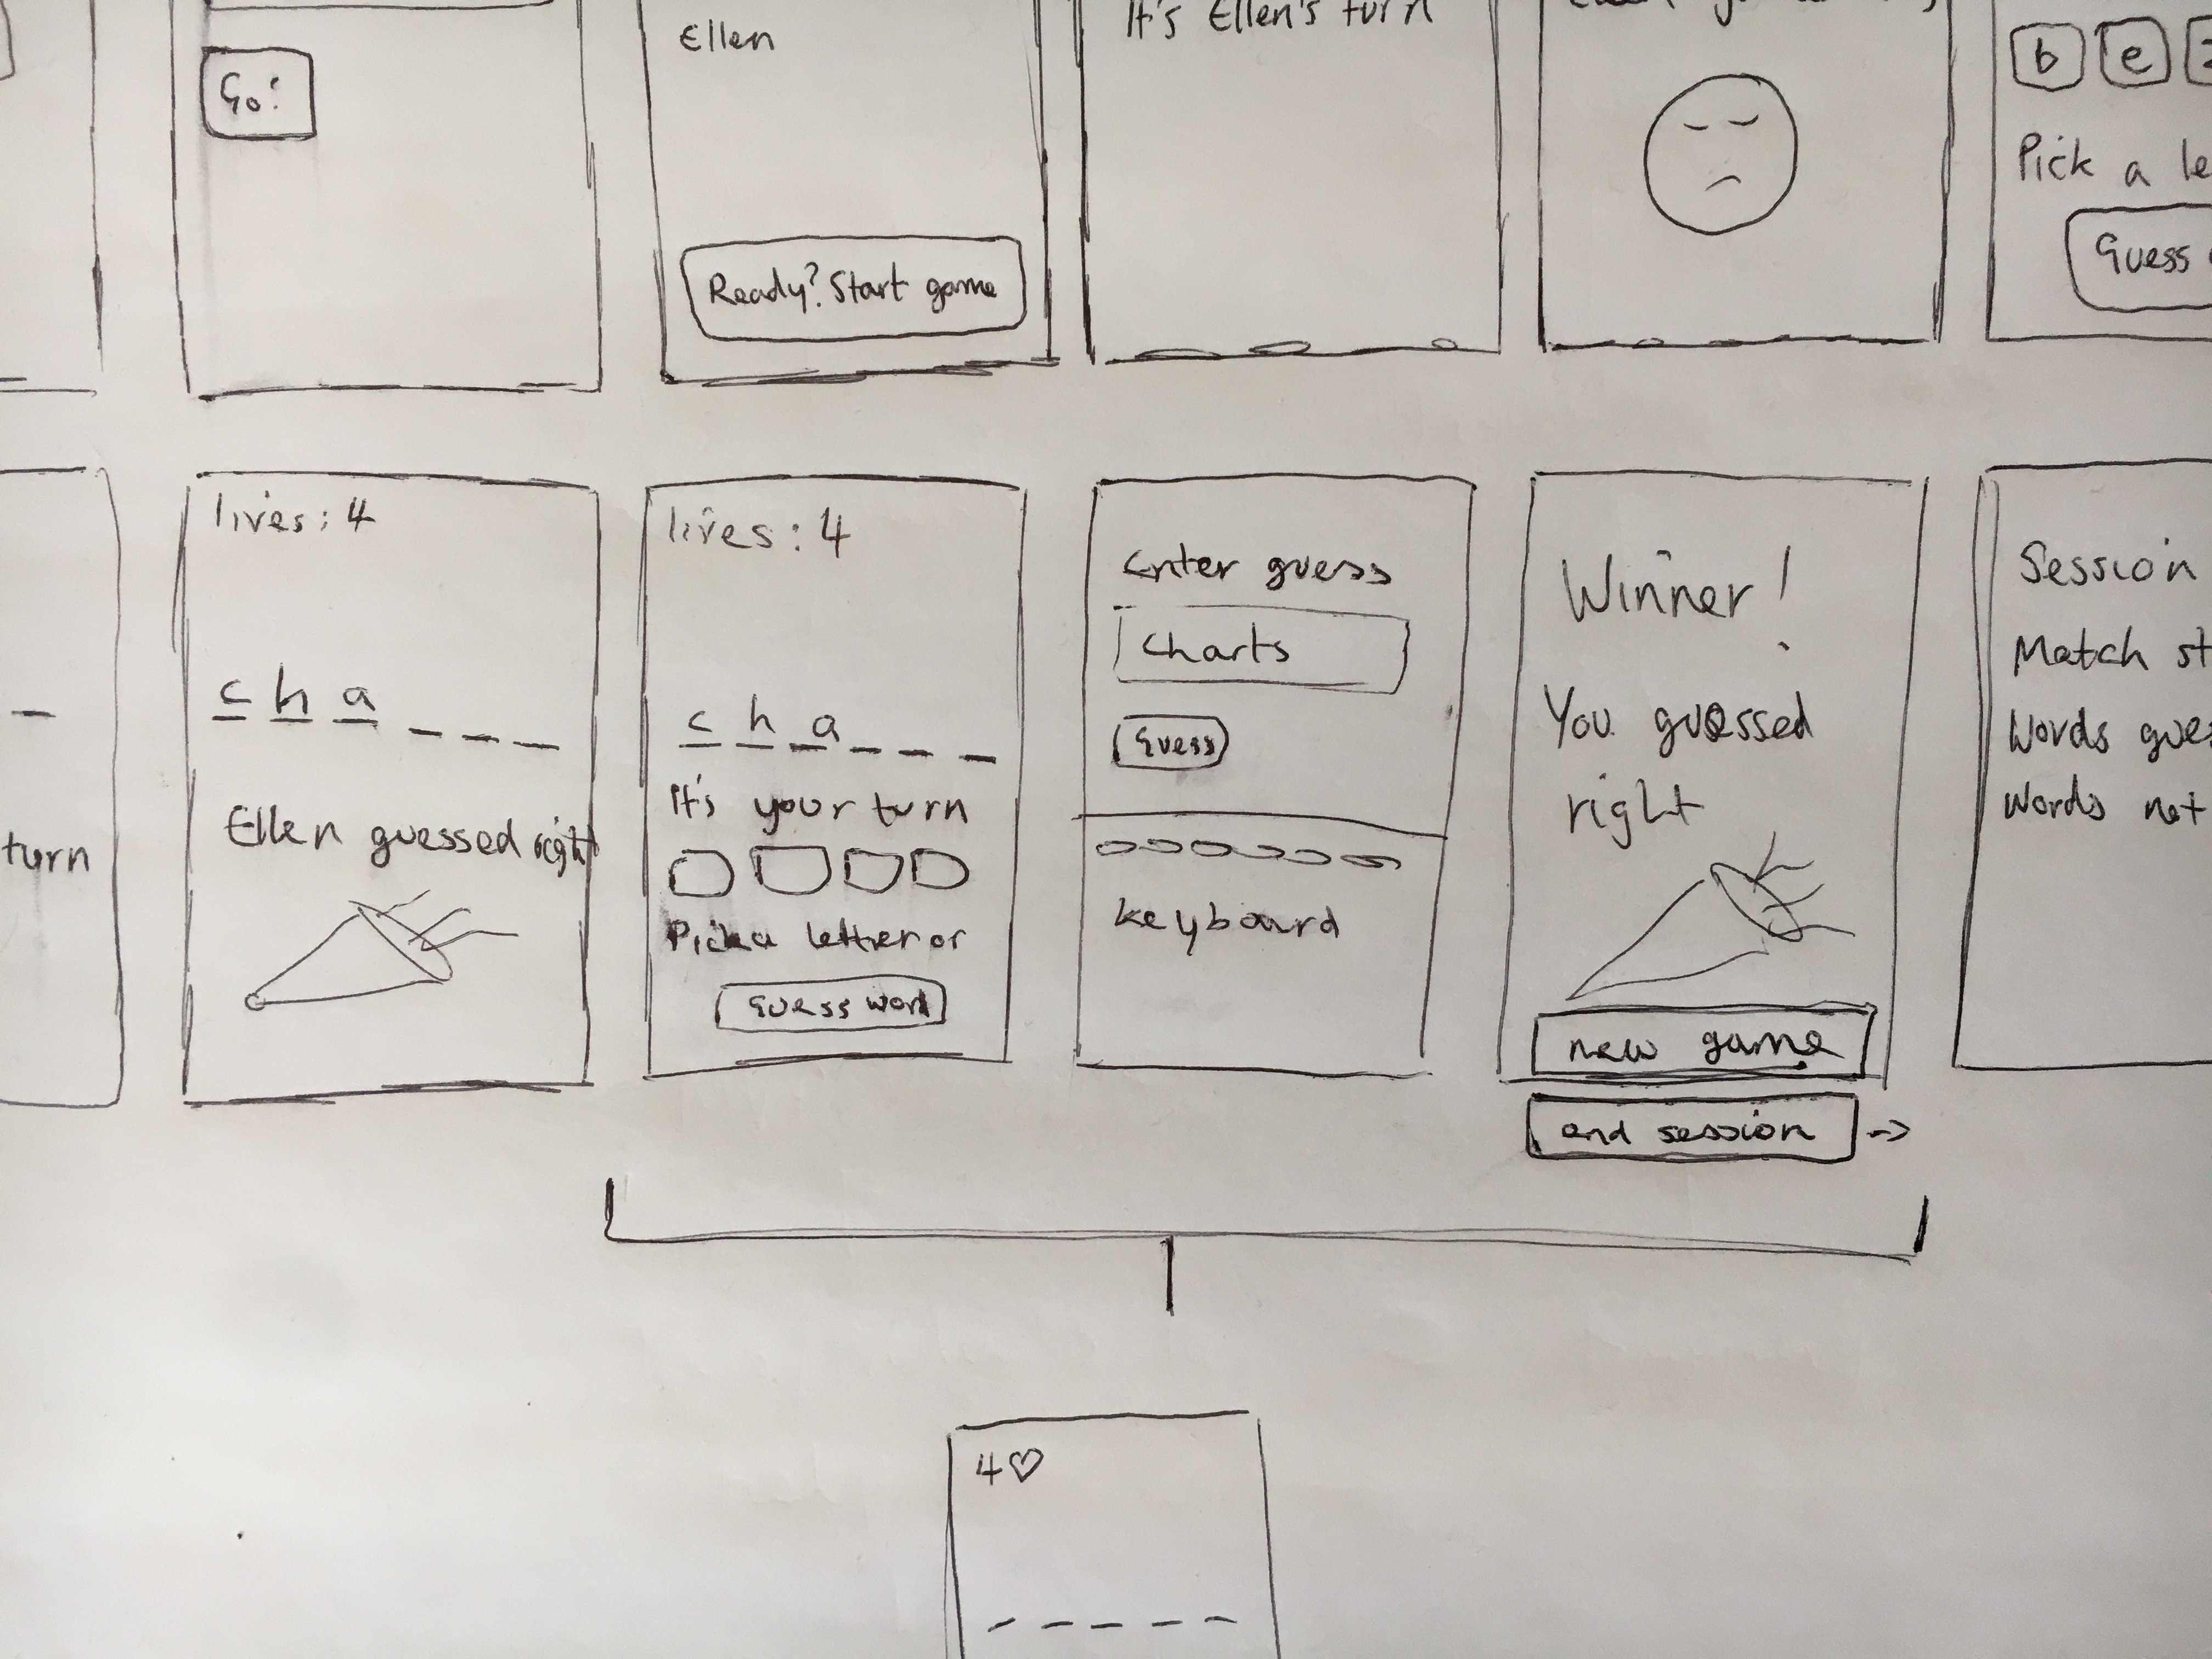 Go!
Ellen
Ready? Start game
It's Ellen's turn
b e
Pick a le
Guess
turn
lives: 4
c h a _ _ _
Ellen guessed right
lives: 4
c h a _ _ _
It's your turn
Pick a letter or
Guess word
Enter guess
charts
Guess
keyboard
Winner!
You guessed
right
new game
end session ->
Session
Match st
Words gues
Words not
4♡
_ _ _ _ _